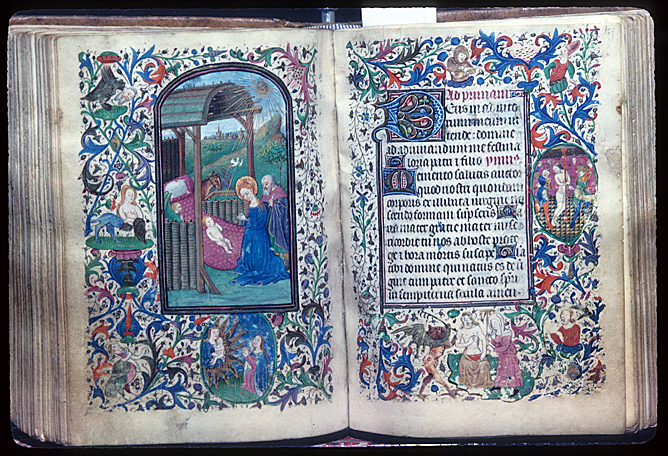 Ad primam
Deus in adiuto
rium meum in
tende: domine
ad adiuuandum me festina
Gloria patri et filio ymnus
Memento salutis auctor
quod nostri quondam
corporis ex illibata uirgine na
scendo formam sumpseris Ma
ria mater gratie mater mise
ricordie tu nos ab hoste prote
ge et hora mortis suscipe Glo
ria domine qui natus es de ui
gine cum patre et sancto spiri
in sempiterna secula amen